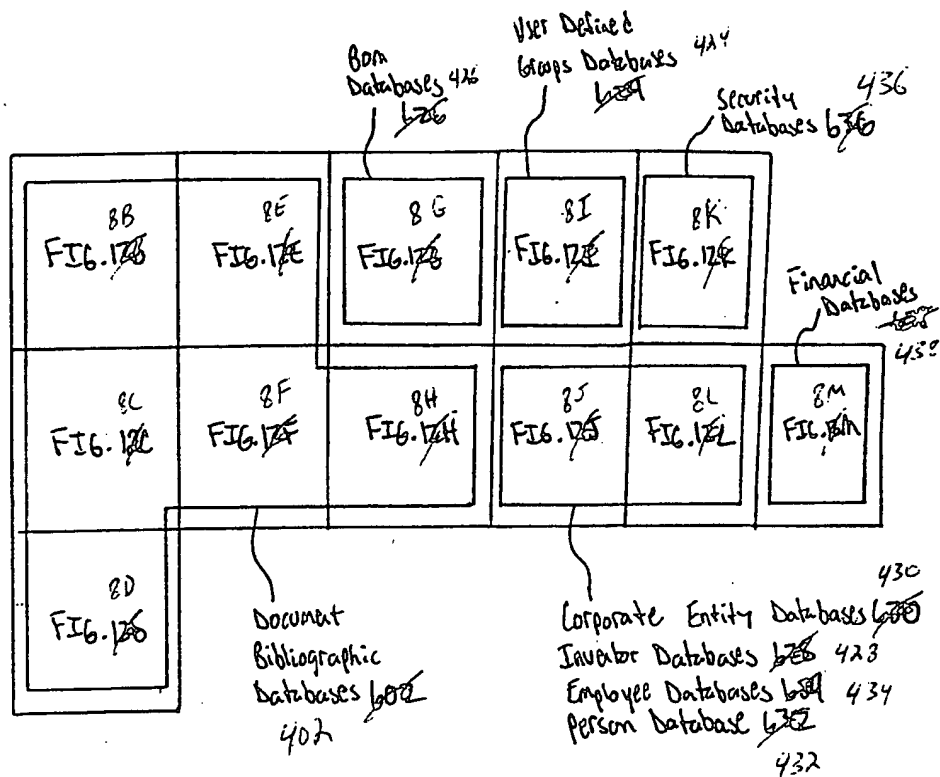 User Defined
Groups Databases 424
624
Bom
Databases 426
626
436
Security
Databases 636
8B
FIG. 12B
8E
FIG. 12E
8G
FIG. 12G
8I
FIG. 12I
8K
FIG. 12K
Financial
Databases
438
8C
FIG. 12C
8F
FIG. 12F
8H
FIG. 12H
8J
FIG. 12J
8L
FIG. 12L
8M
FIG. 12M
8D
FIG. 12D
Document
Bibliographic
Databases 602
402
430
Corporate Entity Databases 630
Inventor Databases 628 423
Employee Databases 634 434
Person Database 632
432